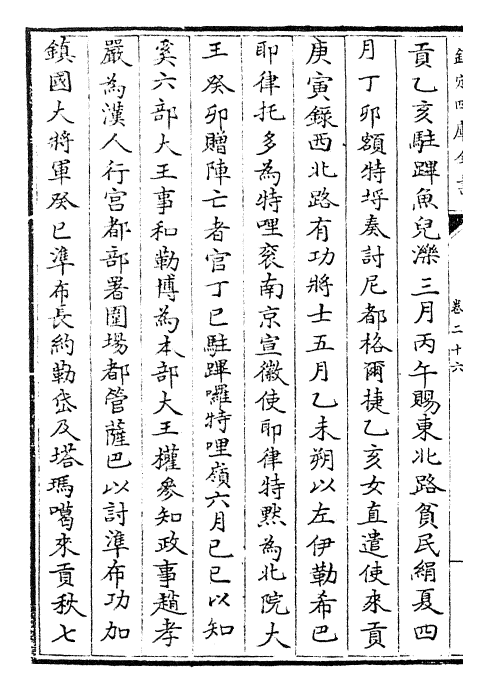 欽定四庫全書
卷二十六
貢乙亥駐蹕魚兒濼三月丙午賜東北路貧民絹夏四
月丁卯額特埒奏討尼都格爾捷乙亥女直遣使來貢
庚寅錄西北路有功將士五月乙未朔以左伊勒希巴
耶律托多為特哩袞南京宣徽使耶律特默為北院大
王癸卯贈陣亡者官丁巳駐蹕囉特哩嶺六月己巳以知
奚六部大王事和勒博為本部大王權參知政事趙孝
嚴為漢人行宮都部署圍場都管薩巴以討準布功加
鎮國大將軍癸巳準布長約勒岱及塔瑪噶來貢秋七